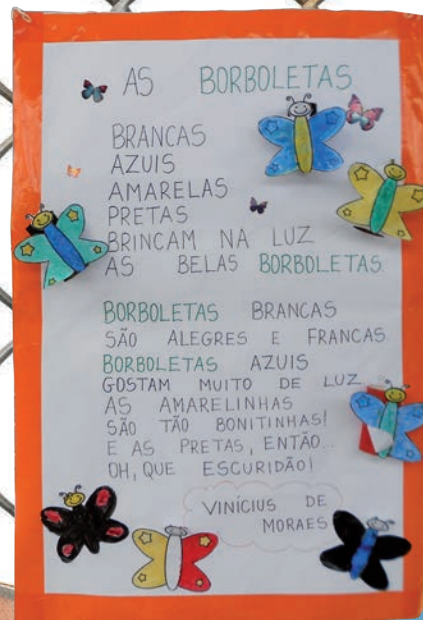 AS BORBOLETAS
BRANCAS
AZUIS
AMARELAS
PRETAS
BRINCAM NA LUZ
AS BELAS BORBOLETAS.
BORBOLETAS BRANCAS
SÃO ALEGRES E FRANCAS
BORBOLETAS AZUIS
GOSTAM MUITO DE LUZ.
AS AMARELINHAS
SÃO TÃO BONITINHAS!
E AS PRETAS, ENTÃO...
OH, QUE ESCURIDÃO!
VINÍCIUS DE
MORAES